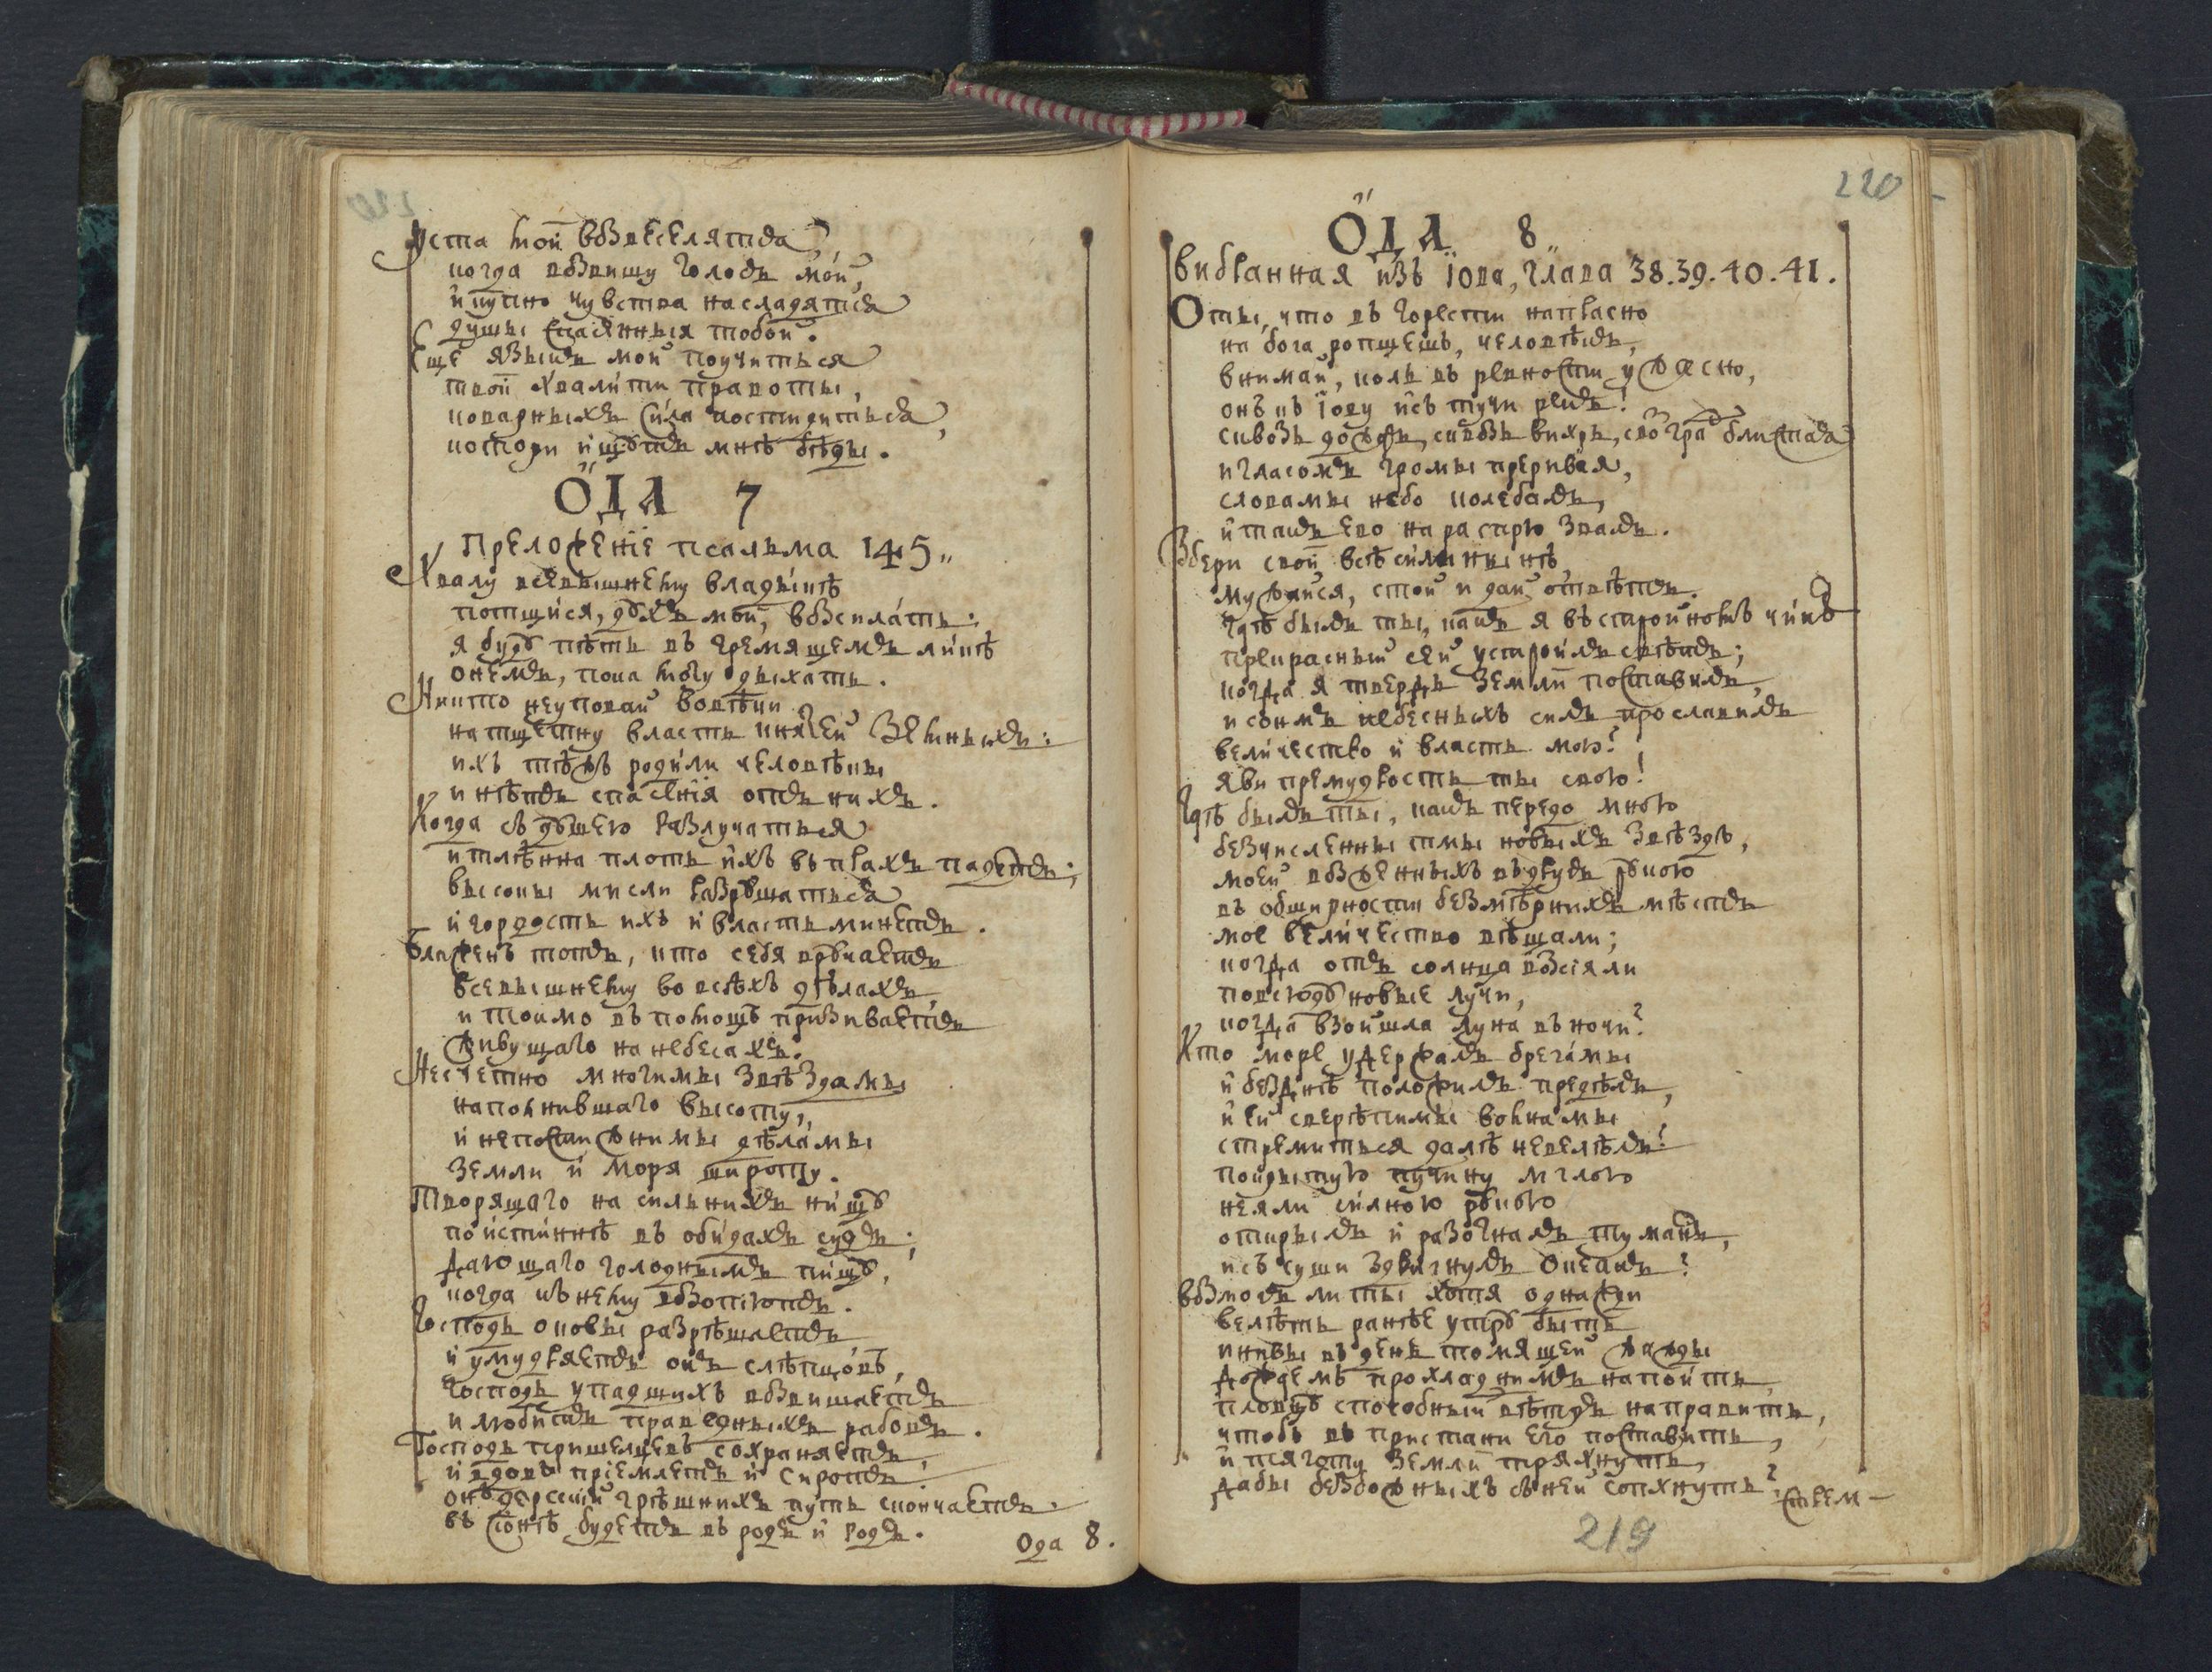 Уста мои возвеселятся,
когда возвишу голосъ мой,
и купно чувства насладятся
души спасенныя тобой.
Еще языкъ мой поучиться
твои хвалити правоты,
коварныхъ сила постидиться,
котори ищутъ мнѣ бѣды.
ОДА 7
Преложеніе псальма 145„
Хвалу всевышнему владыцѣ
потщися, духъ мой, возсилать:
я буду пѣть въ гремящемъ ликѣ
о немъ, пока могу дыхать.
Никто не уповай вовѣки
на тщетну власть князей земныхъ:
ихъ тѣжъ родили человѣки
и нѣтъ спасенія отъ нихъ.
Когда съ душею разлучаться
и тлѣнна плоть ихъ въ прахъ падетъ;
высоки мисли разрушаться
и гордость ихъ и власть минетъ.
Блаженъ тотъ, кто себя вручаетъ
всевышнему во всѣхъ дѣлахъ,
и токмо въ помощь призиваетъ
живущаго на небесахъ.
Несчетно многимы звѣздамы
наполнившаго высоту,
и непостижнимы дѣламы
земли и моря широту.
Творящаго на сильнихъ нищу
по истиннѣ въ обидахъ судъ;
дающаго голоднымъ пищу,
когда къ нему возопіютъ.
Господь оковы разрѣшаетъ
и умудряетъ онъ слѣпцовъ,
господь упадшихъ возвишаетъ
и любитъ праведныхъ рабовъ.
Господь пришелцевъ сохраняетъ,
и вдовъ пріемлетъ и сиротъ.
онъ дерский грѣшнихъ путь скончаетъ
въ Сіонѣ будетъ въ родъ и родъ.
Ода 8.
220
ОДА 8„
вибранная изъ Іова, глава 38.39.40.41.
О ты, что въ горести напрасно
на бога ропщешь, человѣкъ,
внимай, коль въ ревности ужасно,
онъ къ Іову изъ тучи рекъ!
сквозь дождь, сквозь вихрь, сквозь градъ блистая
и гласомъ громы прерывая,
словамы небо колебалъ,
и такъ его на распрю звалъ.
Збери свои всѣ сили нынѣ,
мужайся, стой и дай отвѣтъ.
Гдѣ былъ ты, какъ я въ стройномъ чинѣ
прекрасный сей устроилъ свѣтъ;
когда я твердь земли поставилъ,
и сонмъ небесныхъ силъ прославилъ
величество и власть мою?
яви премудрость ты свою!
Гдѣ былъ ты, какъ передо мною
безчисленны тмы новыхъ звѣздъ,
моей возженныхъ въдругъ рукою
въ обширности безмѣрнихъ мѣстъ
мое величество вѣщали;
когда отъ солнца возсіяли
повсюду новые лучи,
когда взойшла луна въ ночи?
Кто море удержалъ брегамы
и безднѣ положилъ предѣлъ,
и ей сверѣпимы волнамы
стремиться далѣ не велѣлъ?
покрытую пучину мглою
не я ли силною рукою
открылъ и разогналъ туманъ,
и съ суши здвигнулъ Океанъ?
возмоглъ ли ты хотя однажди
велѣть ранѣе утру быть
и нивы въ день томящей жажды
дождемъ прохладнимъ напоить,
пловцу способный вѣтръ направить,
чтобъ въ пристани его поставить,
и тяготу земли тряхнуть,
дабы безбожныхъ съ ней сопхнуть?
Стрем-
219